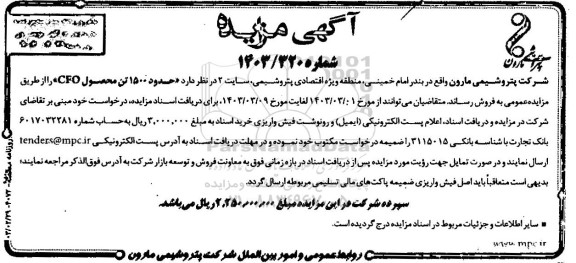 آگهی مزایده
شماره ۱۴۰۳/۳۲۰
پتروشیمی مارون
شرکت پتروشیمی مارون واقع در بندر امام خمینی، منطقه ویژه اقتصادی پتروشیمی، سایت ۲ در نظر دارد «حدود ۱۵۰۰ تن محصول CFO» را از طریق
مزایده عمومی به فروش رساند. متقاضیان می توانند از مورخ ۱۴۰۳/۰۳/۰۱ لغایت مورخ ۱۴۰۳/۰۳/۰۹، برای دریافت اسناد مزایده، درخواست خود مبنی بر تقاضای
شرکت در مزایده و دریافت اسناد، اعلام پست الکترونیکی (ایمیل) و رونوشت فیش واریزی خرید اسناد به مبلغ ۳,۰۰۰,۰۰۰ ریال به حساب شماره ۶۰۱۷۰۳۲۲۸۱
بانک تجارت با شناسه بانکی ۳۱۱۵۰۱۵ را ضمیمه درخواست مکتوب خود نموده و در مهلت دریافت اسناد به آدرس پست الکترونیکی tenders@mpc.ir
ارسال نمایند و در صورت تمایل جهت رؤیت مورد مزایده پس از دریافت اسناد در بازه زمانی فوق به معاونت فروش و توسعه بازار شرکت به آدرس فوق‌الذکر مراجعه نمایند؛
بدیهی است متعاقباً باید اصل فیش واریزی ضمیمه پاکت‌های مالی تسلیمی مربوطه ارسال گردد.
سپرده شرکت در این مزایده مبلغ ۲,۲۵۰,۰۰۰,۰۰۰ ریال می‌باشد.
سایر اطلاعات و جزئیات مربوط در اسناد مزایده درج گردیده است.
www.mpc.ir
روابط عمومی و امور بین الملل شرکت پتروشیمی مارون